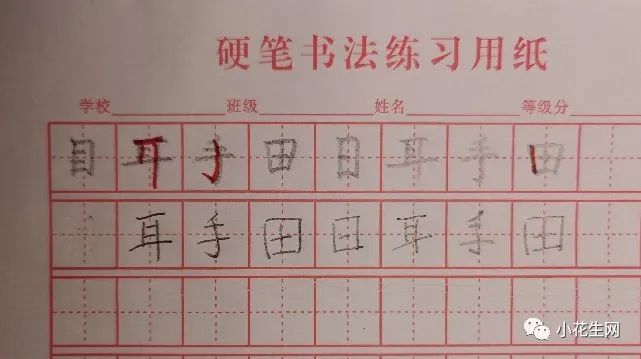 硬笔书法练习用纸
学校 班级 姓名 等级分
目 耳 手 田 目 耳 手 田
耳 手 田 耳 手 田
小花生网